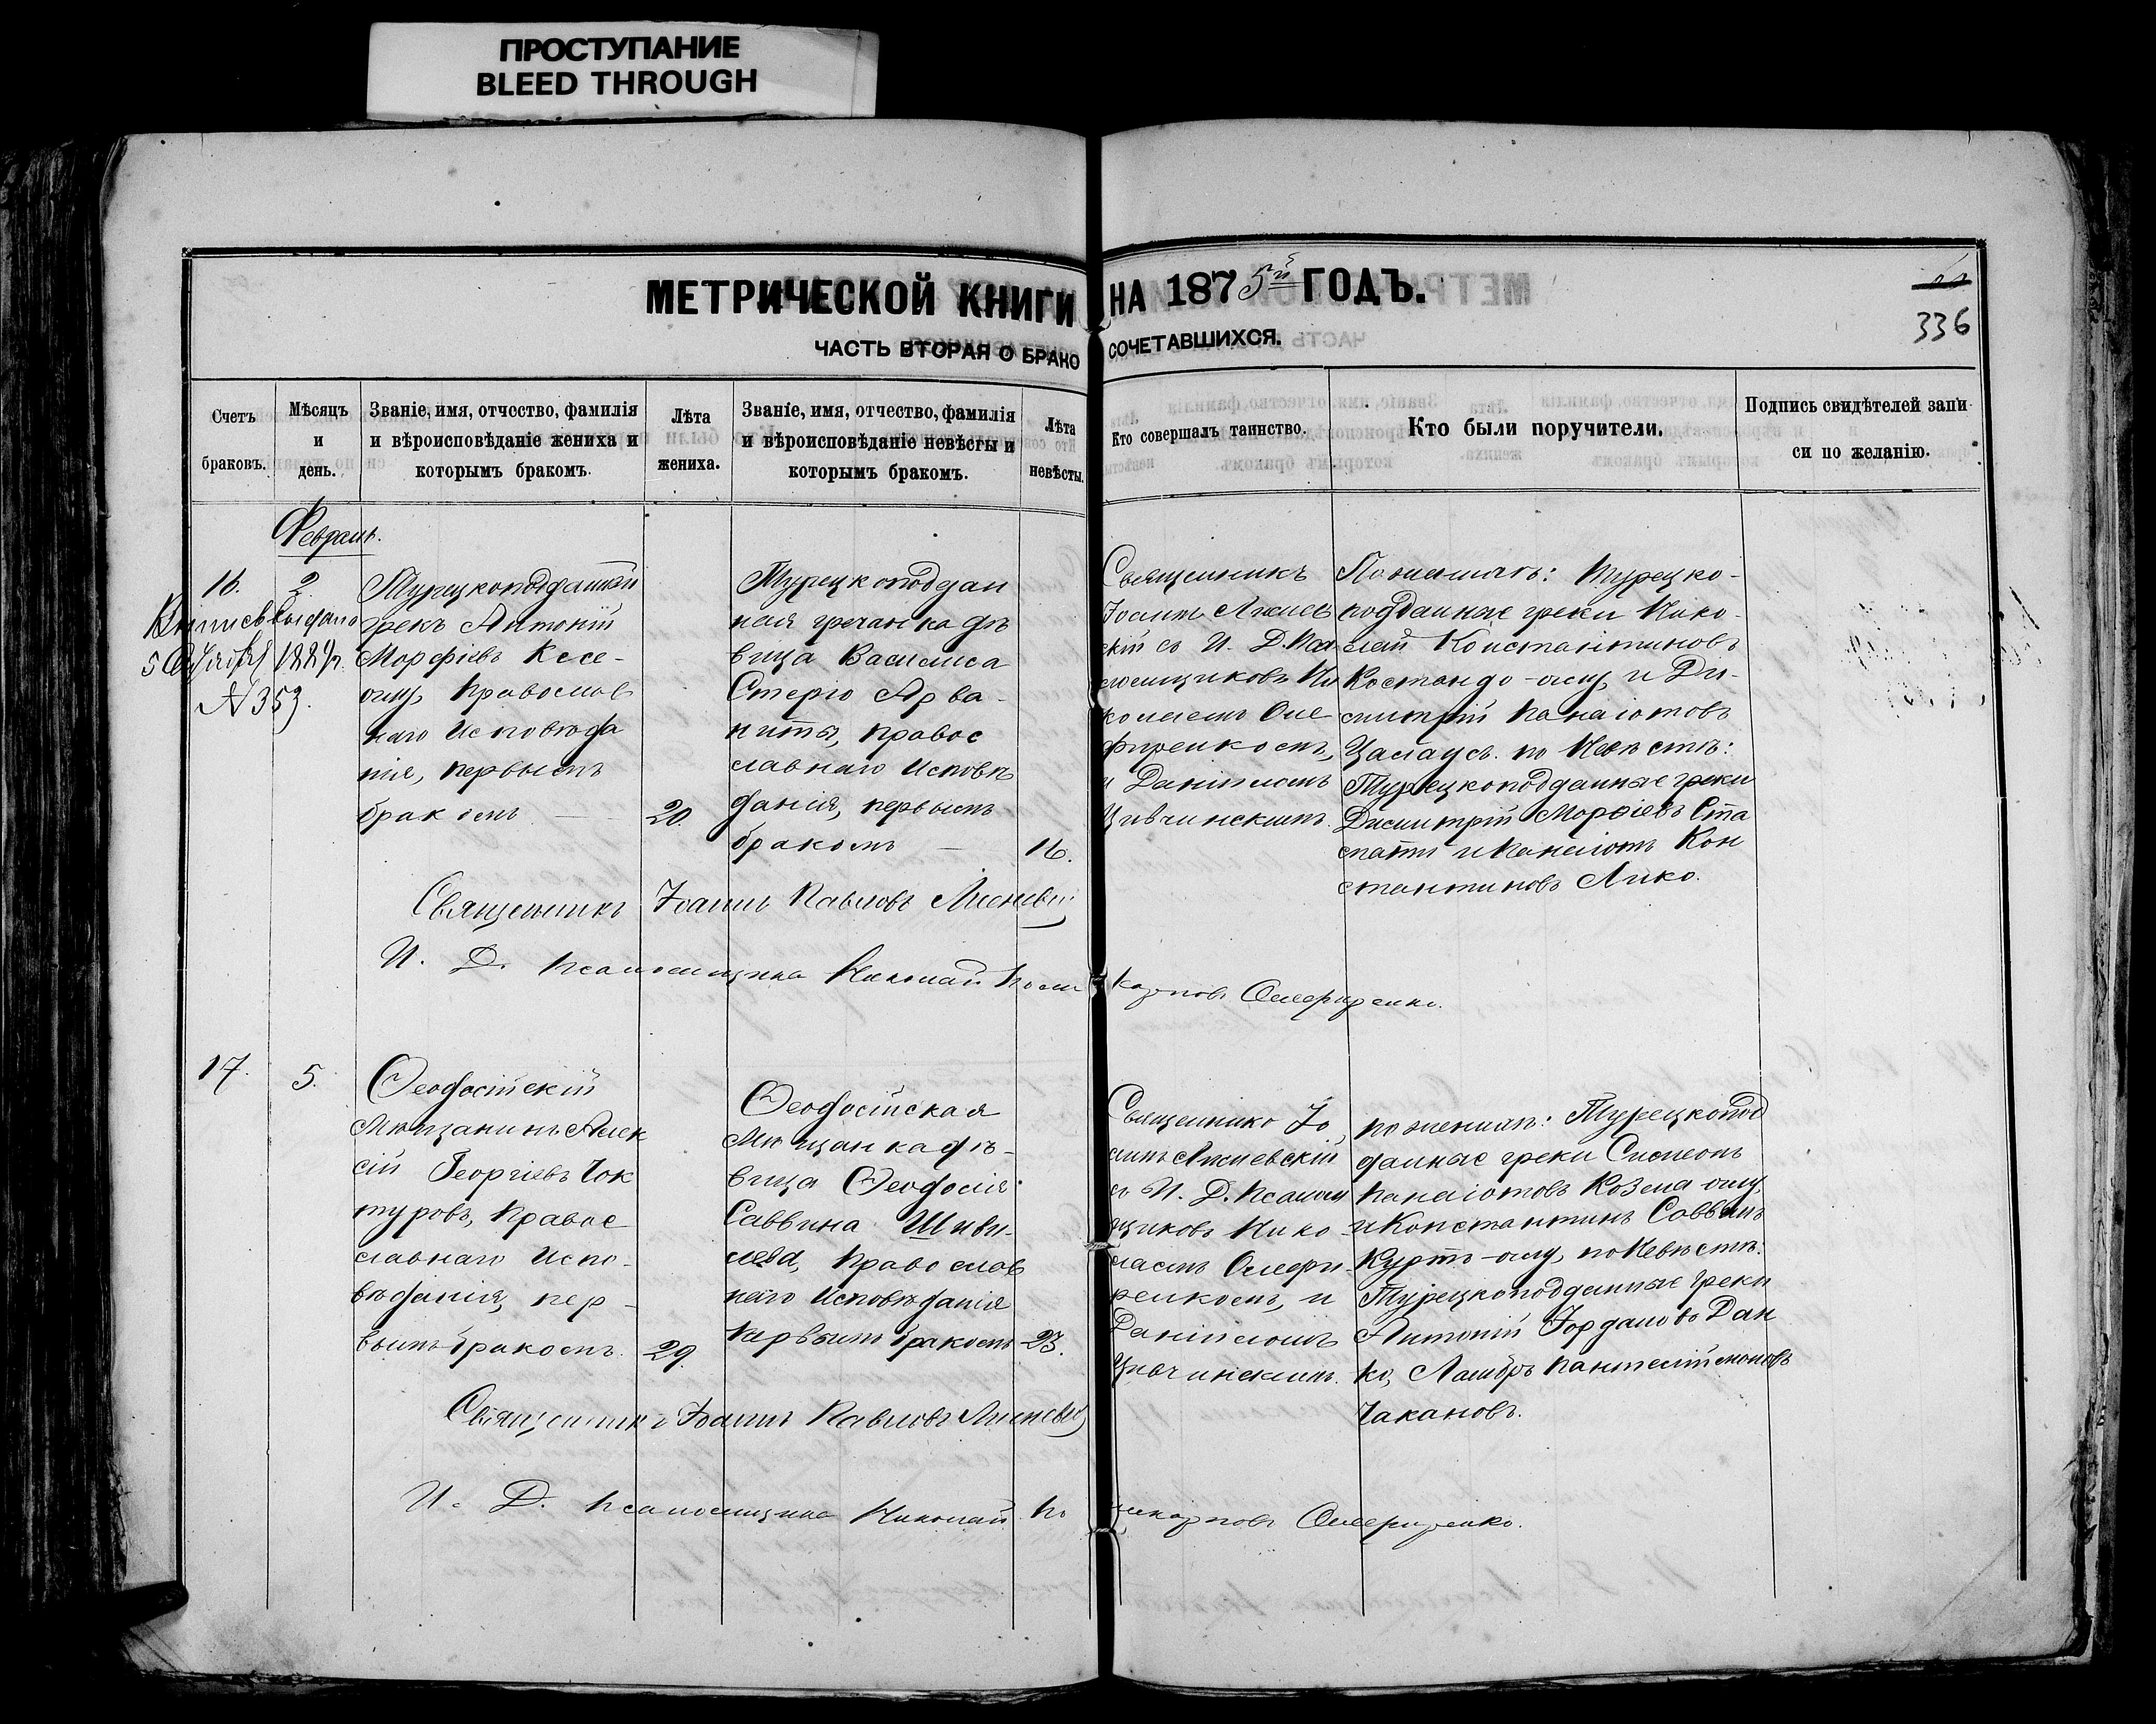 ПРОСТУПАНИЕ
BLEED THROUGH
МЕТРИЧЕСКОЙ КНИГИ НА 1875й ГОДЪ.
336
ЧАСТЬ ВТОРАЯ О БРАКОСОЧЕТАВШИХСЯ.
Счетъ браковъ.
Мѣсяцъ и день.
Званіе, имя, отчество, фамилія
и вѣроисповѣданіе жениха и
которымъ бракомъ.
Лѣта
жениха.
Званіе, имя, отчество, фамилія
и вѣроисповѣданіе невѣсты и
которымъ бракомъ.
Лѣта
невѣсты.
Кто совершалъ таинство.
Кто были поручители.
Подпись свидѣтелей запи
си по желанію.
Февраль.
16.
2.
выдано
5
188
№ 353.
Турецкоподданый
грекъ Антоній
Морфіевъ Кесе-
оглу, Православ
наго Исповѣда
нія, первымъ
бракомъ
20.
Турецкоподдан
ная гречанка дѣ
вица Василиса
Стеріо Арва-
ниты, правос
лавнаго Исповѣ
данія, первымъ
бракомъ
16.
Священникъ
Іоаннъ
скій съ И. Д. Пса
ломщиковъ Ни
колаемъ Оле
фиренкомъ,
и Даніиломъ
Цивчинскимъ.
По женихѣ: Турецко-
подданные греки Нико-
лай Константиновъ
Костандо-оглу, и Ди-
митрій Панаіотовъ
по Невѣстѣ:
Турецкоподданные греки
Димитрій Морфіевъ Ста
мати и Панаіотъ Кон
стантиновъ Лико.
Священникъ Іоаннъ Павловъ
И. Д. Псаломщика Николай Поликарповъ Олефиренко.
17.
5.
Ѳеодосійскій
Мѣщанинъ Алек
сій Георгіевъ Чок
туровъ, Правос
лавнаго Испо-
вѣданія, пер-
вымъ бракомъ.
29
Ѳеодосійская
Мѣщанка дѣ-
вица Ѳеодосія
Саввина Шиви-
лева, Православ
наго Исповѣданія
Первымъ бракомъ
23.
Священникъ Іо
аннъ
съ И. Д. Псалом
щиковъ Нико-
лаемъ Олефи-
ренкомъ, и
Даніиломъ
Цивчинскимъ.
по женихѣ: Турецкопод
данные греки Симеонъ
Панаіотовъ Козема-оглу,
и Константинъ Саввинъ
Куртъ-оглу, по Невѣстѣ:
Турецкоподданные Греки
Антоній Іордановъ Дан
ко, Ламбръ Пантелеймоновъ
Чакановъ.
Священникъ Іоаннъ Павловъ
И. Д. Псаломщика Николай Поликарповъ Олефиренко.